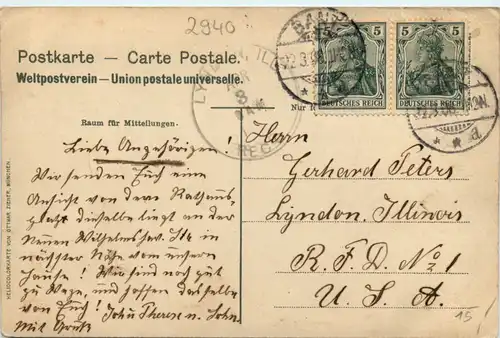 2940
Postkarte — Carte Postale.
Weltpostverein — Union postale universelle.
Nur f
Raum für Mitteilungen.
5 5
DEUTSCHES REICH DEUTSCHES REICH
BANT
22.3.08.
LYNDON, ILL.
REC'
Liebe Angehörigen!
Wir senden Euch eine
Ansicht von dem Rathaus,
platz dieselbe liegt an der
Neuen Wilhelmshav. Str in
nächster Nähe vom unsern
Hause! Wir sind noch gut
zu Wege, und hoffen dasselbe
von Euch! John Therese u. John.
Mit Gruß
Herrn
Gerhard Peters
Lyndon. Illinois
R. F. D. No 1
U. S. A.
15
HELIOCOLORKARTE VON OTTMAR ZIEHER, MÜNCHEN.